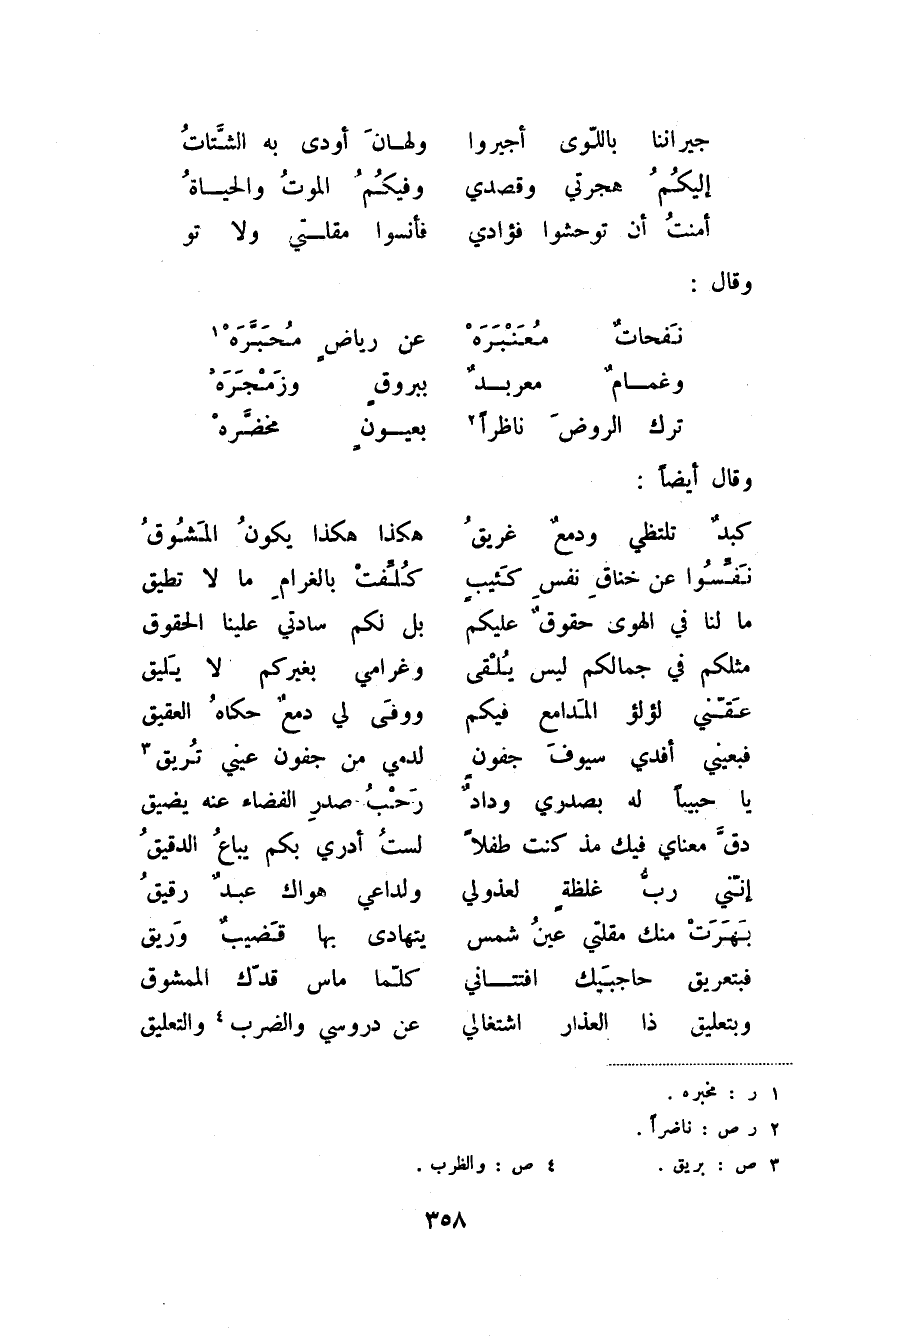 جيراننا باللّوى أجيروا ولهانَ أودى به الشَّتاتُ
إليكُمُ هجرتي وقصدي وفيكُمُ الموتُ والحياةُ
أمنتُ أن توحشوا فؤادي فأنسوا مقلتي ولا تو
وقال :
نَفحاتٌ مُعَنْبَرَهْ عن رياضٍ مُحَبَّرَهْ١
وغمامٌ معربدٌ ببروقٍ وزَمْجَرَهْ
ترك الروضَ ناظراً٢ بعيونٍ مخضَّرهْ
وقال أيضاً :
كبدٌ تلتظي ودمعٌ غريقُ هكذا هكذا يكونُ المَشُوقُ
نَفِّسُوا عن خناقِ نفسِ كَئيبٍ كُلِّفتْ بالغرامِ ما لا تطيق
ما لنا في الهوى حقوقٌ عليكم بل لكم سادتي علينا الحقوق
مثلكم في جمالكم ليس يُلْقى وغرامي بغيركم لا يَليق
عَقّني لؤلؤ المَدامع فيكم ووفَى لي دمعٌ حكاهُ العقيق
فبعيني أفدي سيوفَ جفونٍ لدمي من جفون عيني تُريق٣
يا حبيباً له بصدري ودادٌ رَحْبُ صدرِ الفضاء عنه يضيق
دقَّ معناي فيك مذ كنت طفلاً لستُ أدري بكم يباعُ الدقيقُ
إنّني ربُّ غلظةٍ لعذولي ولداعي هواك عبدٌ رقيقُ
بَهَرَتْ منك مقلتي عينُ شمس يتهادى بها قَضيبٌ وَريق
فبتعريق حاجبَيك افتتاني كلّما ماس قدّك الممشوق
وبتعليق ذا العذار اشتغالي عن دروسي والضرب٤ والتعليق
١ ر : مخبره .
٢ ر ص : ناضراً .
٣ ص : بريق . ٤ ص : والظرب .
٣٥٨